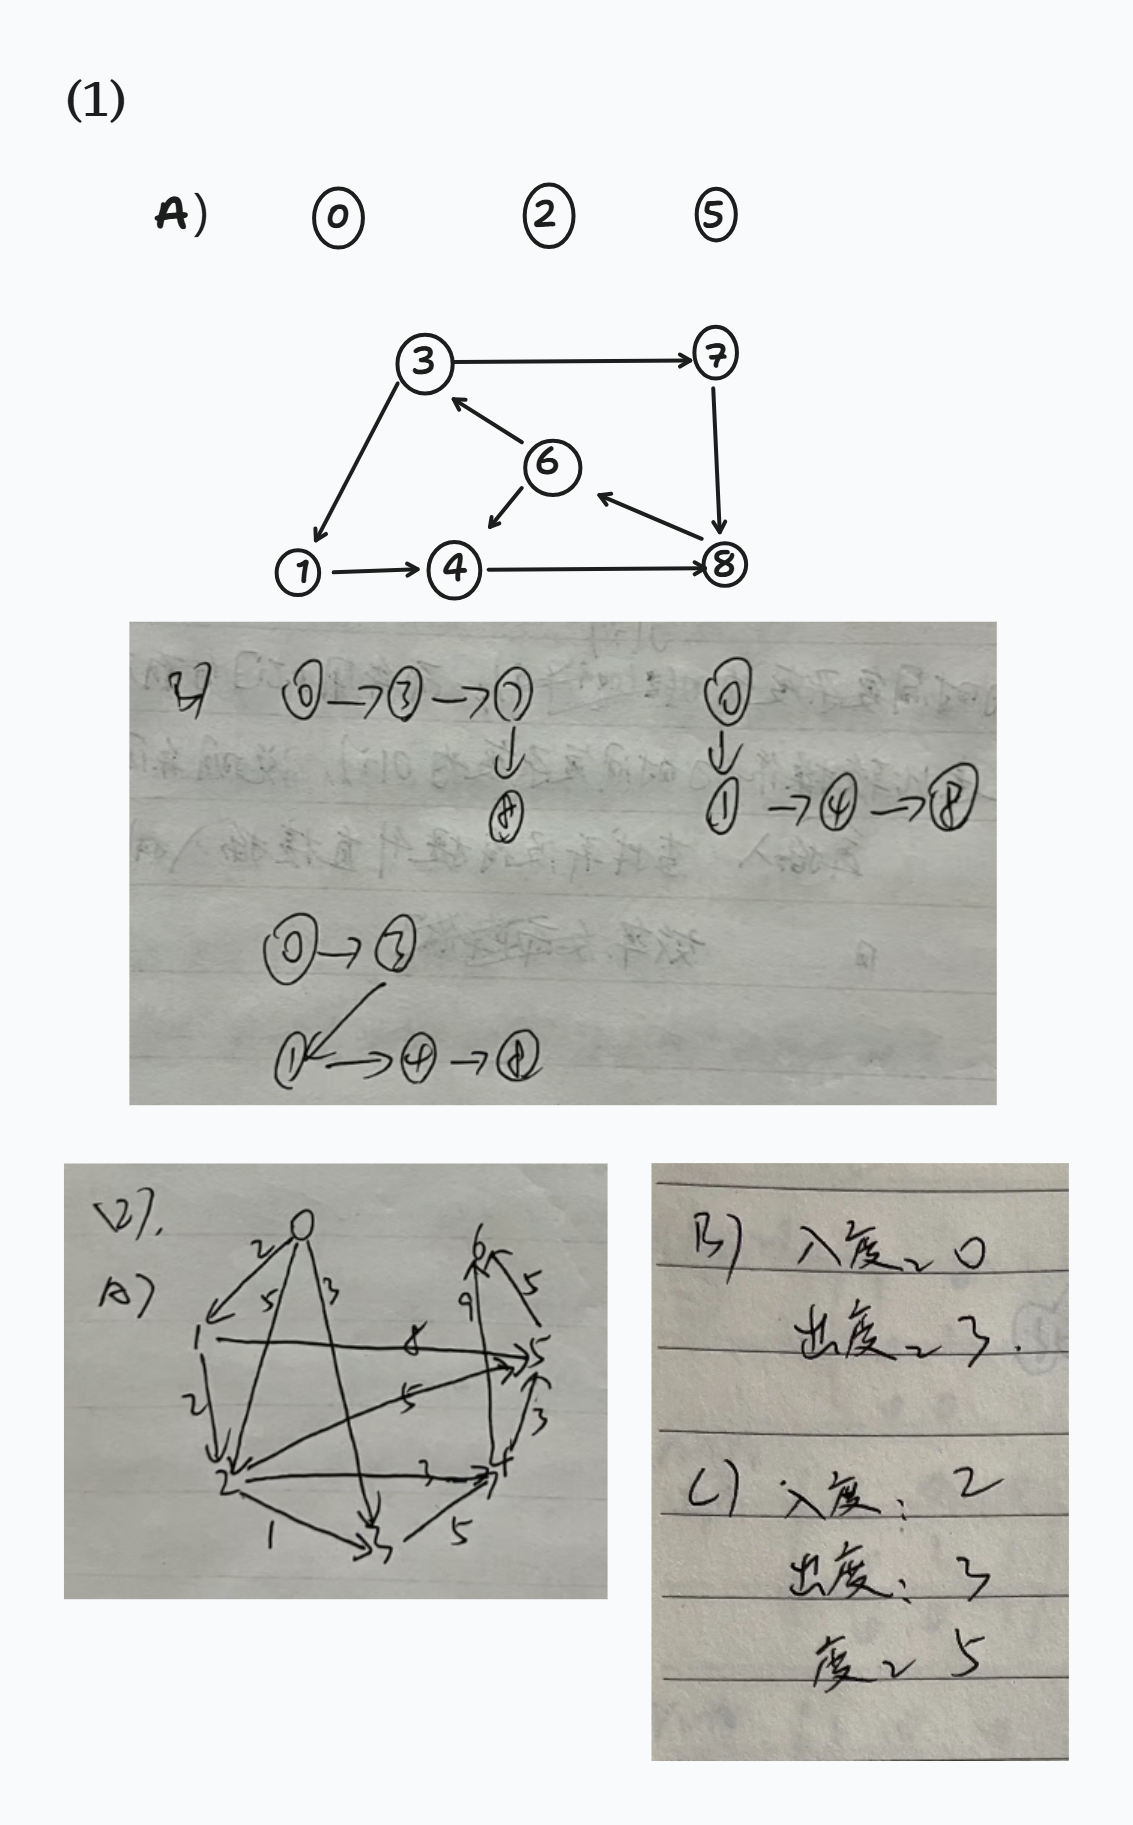 (1)
A) 0 2 5
3 7
6
1 4 8
B) 0 3 7 0
8 1 4 8
0 3
1 4 8
(2).
A)
0 6
2 5 3 9 5
1 8 5
2 5 3
2 3 4
1 3 5
B) 入度=0
出度=3.
C) 入度: 2
出度: 3
度=5